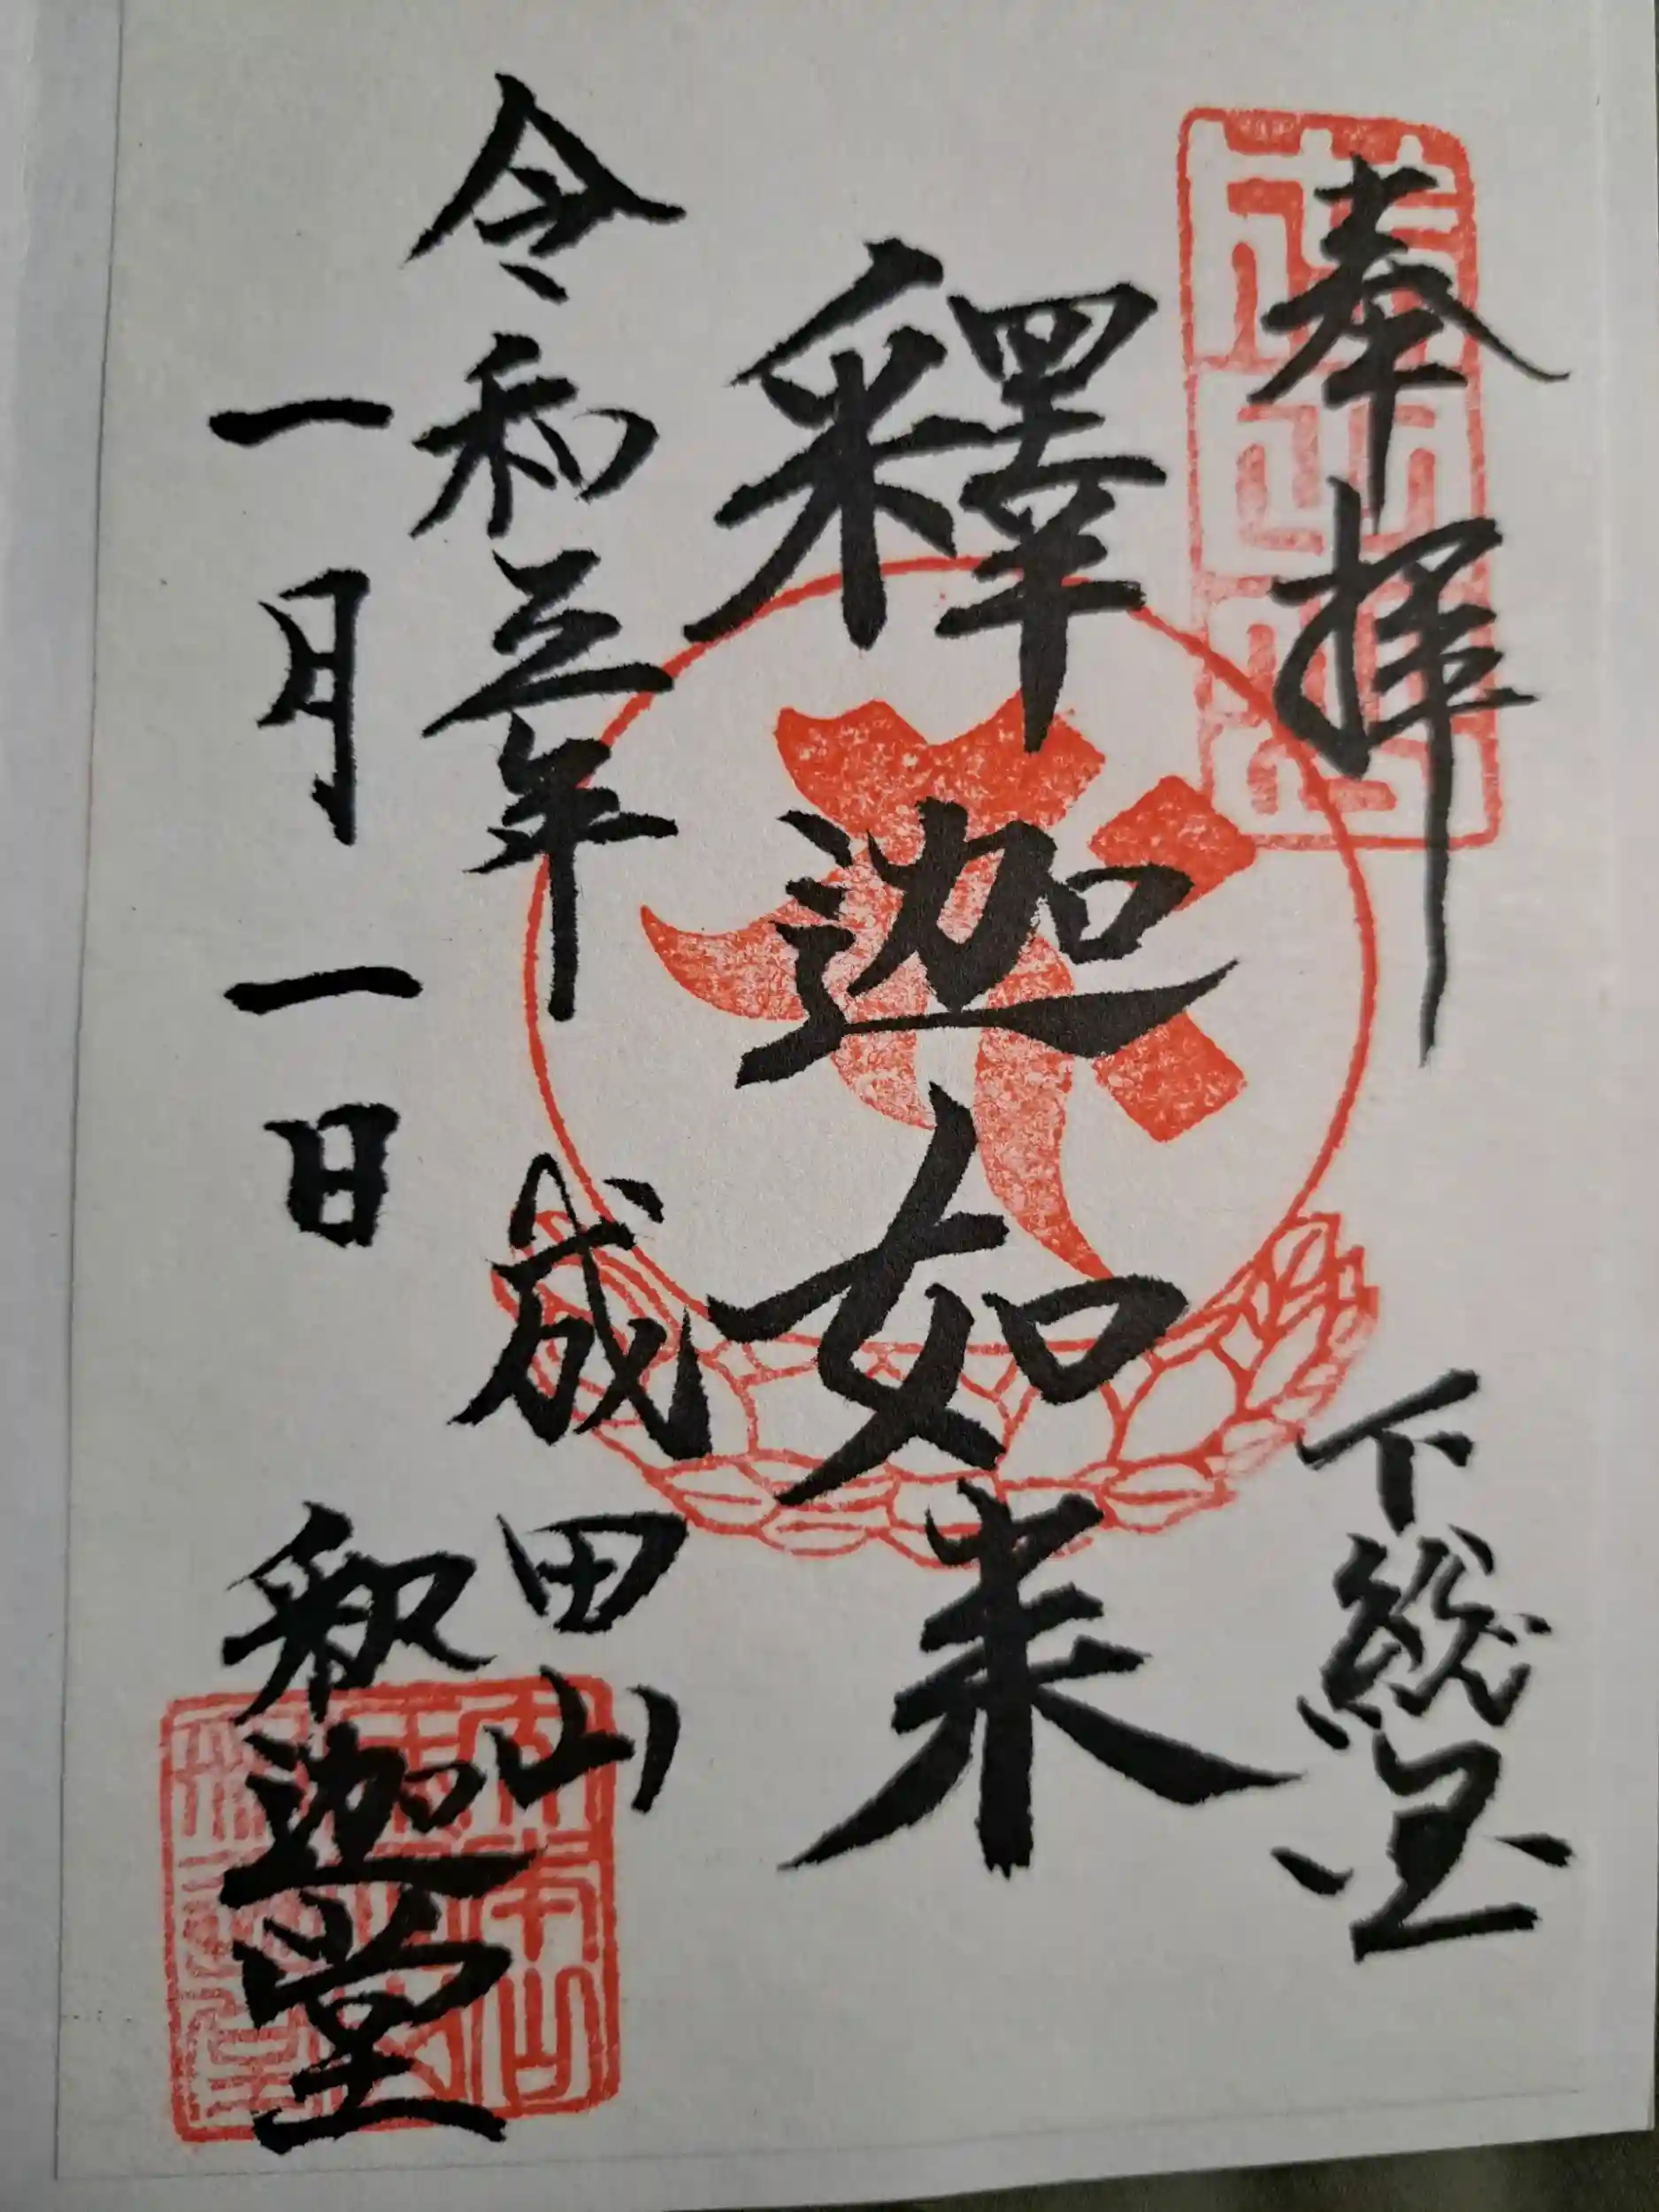 奉拝 下総国
釋迦如来
令和五年 成田山
一月一日 釈迦堂